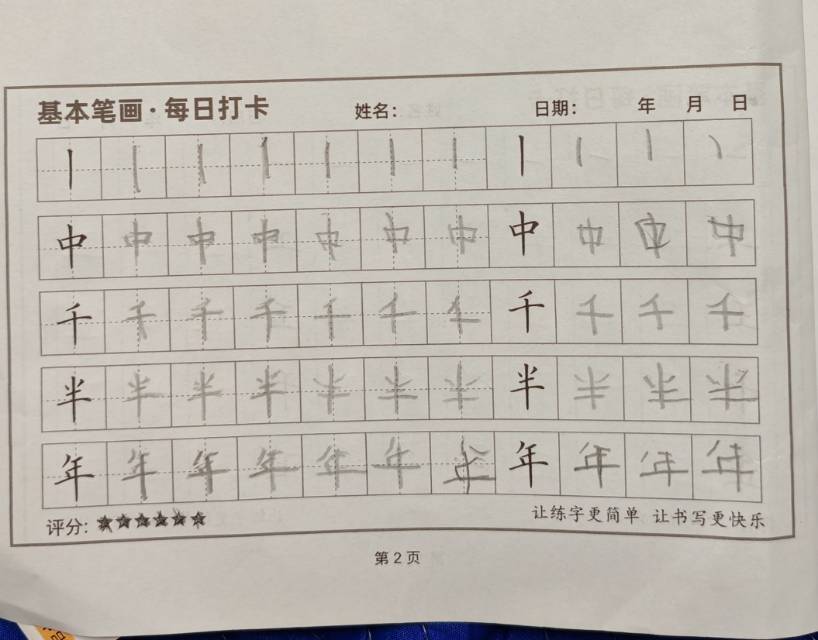 基本笔画·每日打卡 姓名： 日期： 年 月 日
丨 丨 丨 丨 丨 丨 丨 丨 丨 丨 丨
中 中 中 中 中 中 中 中 中 中 中
千 千 千 千 千 千 千 千 千 千 千
半 半 半 半 半 半 半 半 半 半 半
年 年 年 年 年 年 年 年 年 年 年
评分：☆☆☆☆☆☆ 让练字更简单 让书写更快乐
第 2 页